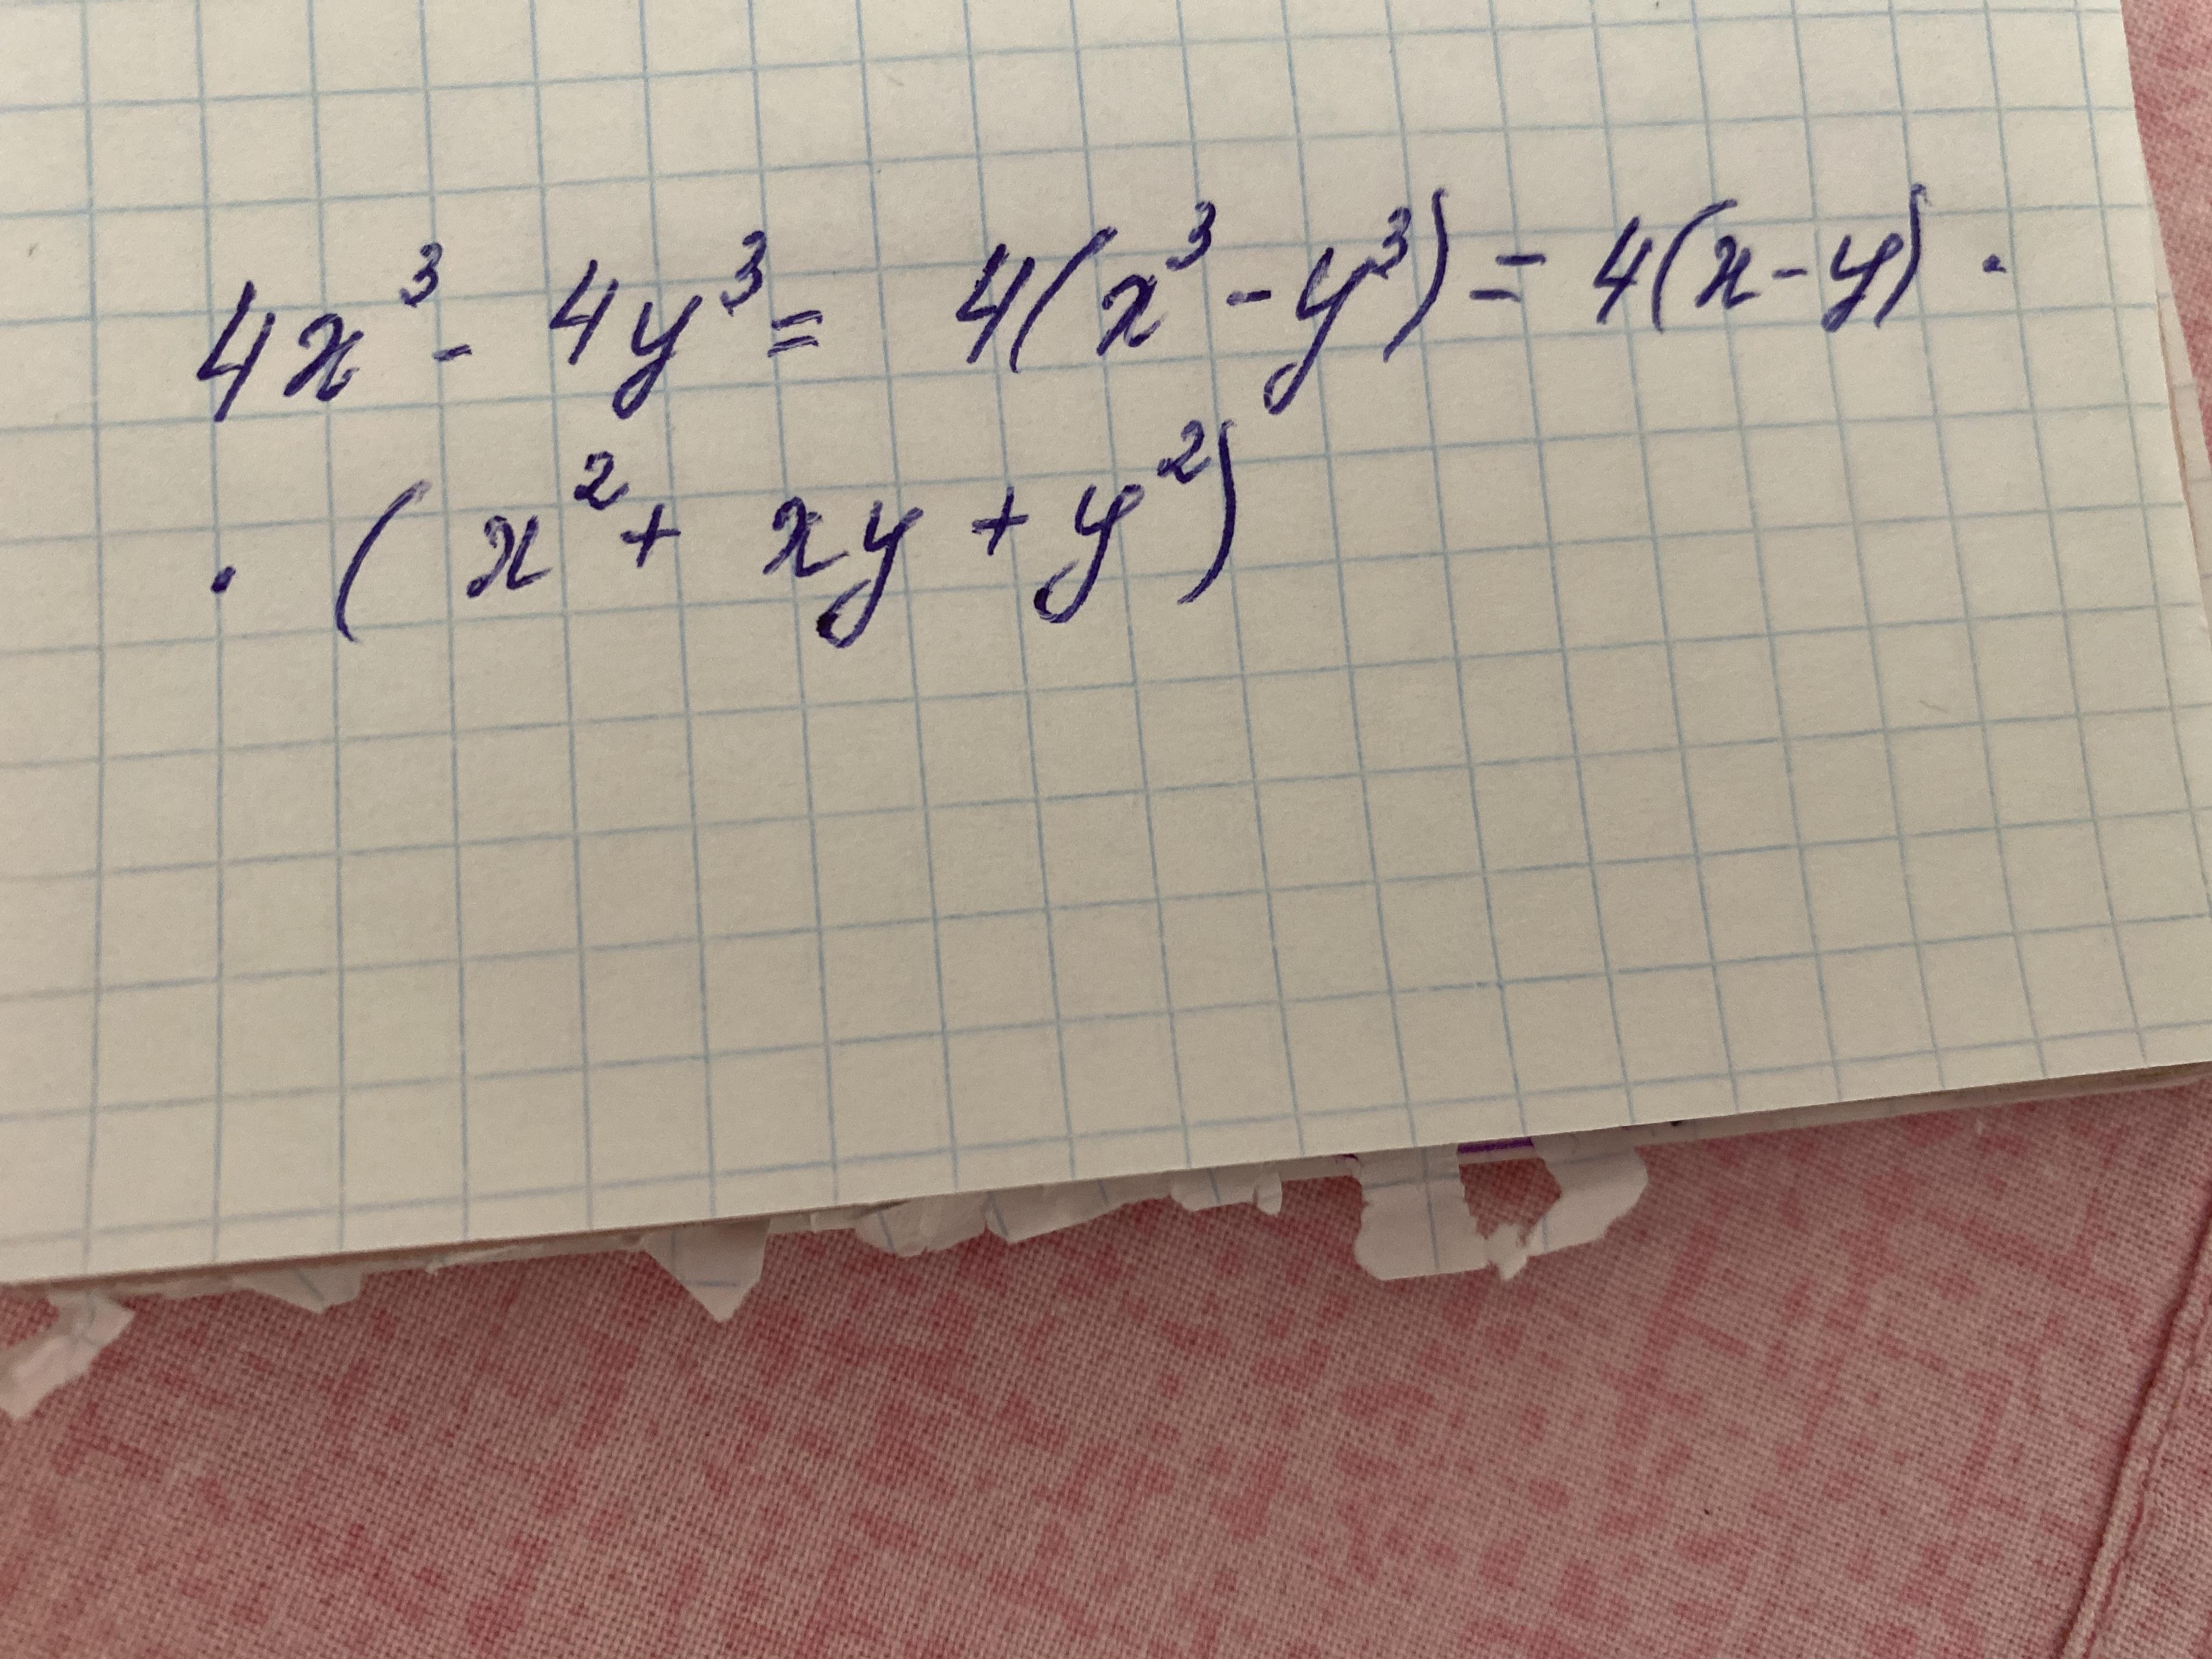 4x³ - 4y³ = 4(x³ - y³) = 4(x - y) ·
· (x² + xy + y²)